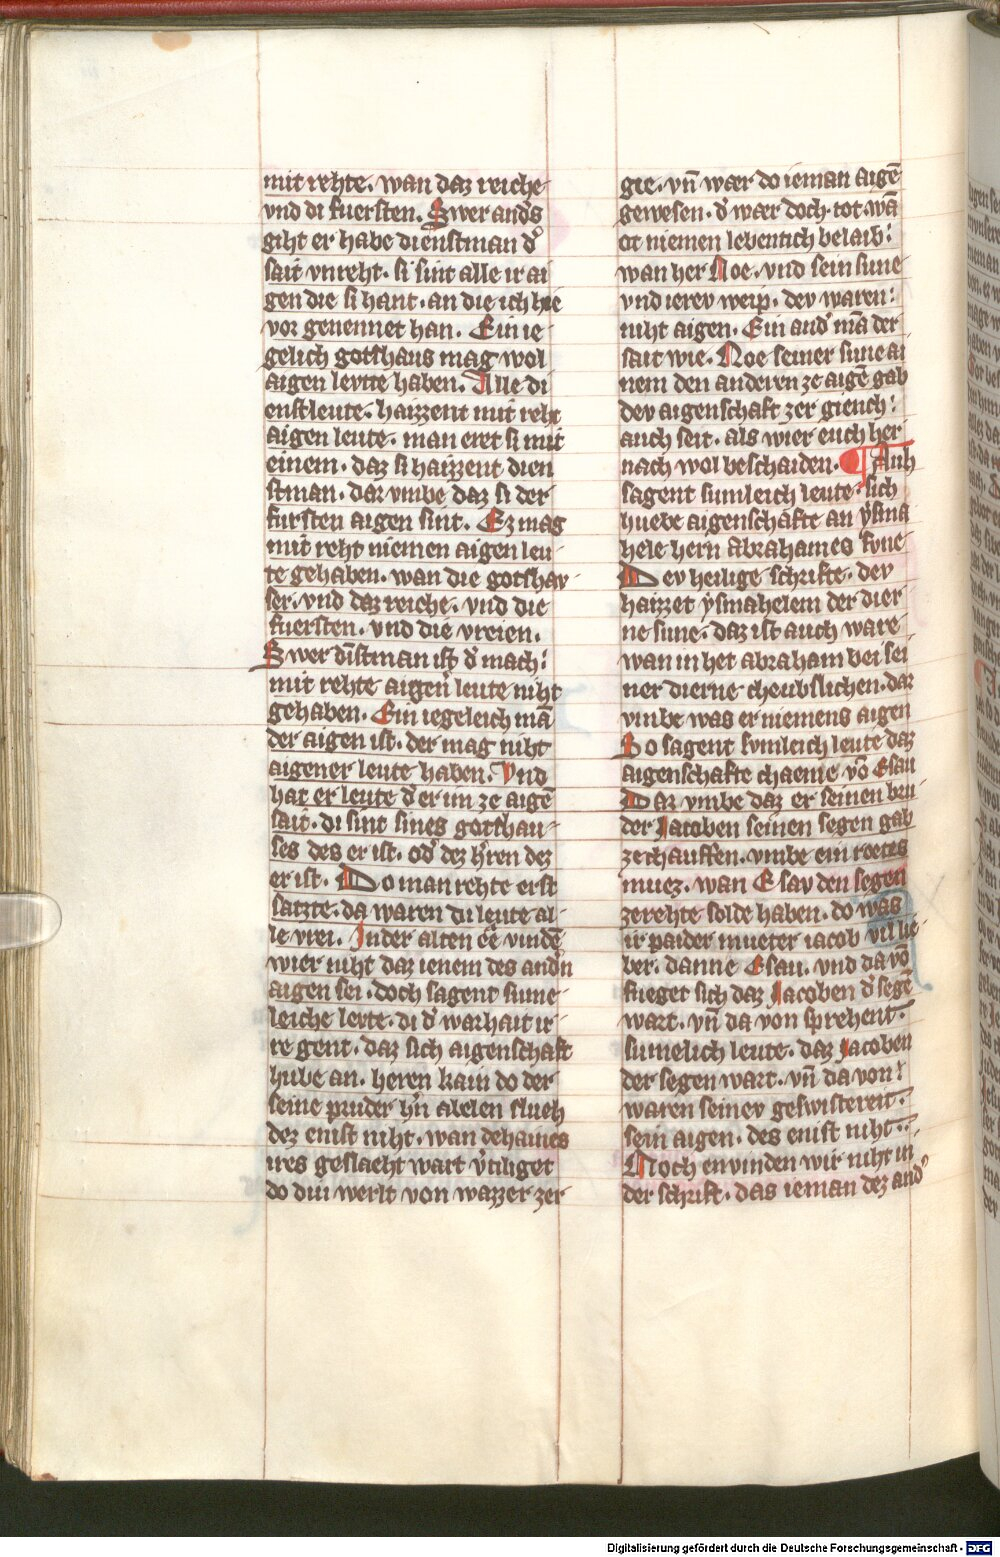 mit rehte. wan daz reiche
vnd di fuersten. Swer and̾s
giht er habe dienstman d̾
sait vnreht. si sint alle ir ai
gen die si hant. an die ich hie
vor genennet han. Ein ie-
gelich gotshaus mag wol
aigen levte haben. Alle di
enstleute. haizzent mit reht
aigen leute. man eret si mit
einem. daz si haizzent dien
stman. dar vmbe daz si der
fursten aigen sint. Ez mag
mit reht niemen aigen leu-
te gehaben. wan die gotshav-
ser. vnd daz reiche. vnd die
fuersten. vnd die vreien.
Swer dīstman ist d̾ mach
mit rehte aigen leute niht
gehaben. Ein iegeleich mā
der aigen ist. der mag niht
aigener leute haben. Vnd
hat er leute d̾ er im ze aigē
sait. di sint sines gotshau-
ses des er ist. od̾ dez h̾ren dez
er ist. Do man rehte erst
satzte. da waren di leute al-
le vrei. In der alten ēe vindē
wier niht daz ienem des and̾n
aigen sei. doch sagent sume-
leiche levte. di d̾ warhait ir-
re gent. daz sich aigenschaft
hube an. heren kain do der
seine pruder h̾n abelen slueh
dez enist niht. wan dehaines
ires geslaeht wart v̾tiliget
do diu werlt von wazzer zer
gie. vn̄ waer do ieman aigē
gewesen. d̾ waer doch tot. wā
ot niemen lebentich belaib.
wan her Noe. vnd sein sune
vnd ierev weip. dev waren
niht aigen. Ein and̾ mā der
sait wie. Noe seiner sune ai
nem den anderen ze aigē gab
dev aigenschaft zer giench
auch seit. als wier euch her
nach wol beschaiden. ¶ Auh
sagent sumleich leute. sich
huebe aigenschafte an ysma
hele hern abrahames sune
Dev heilige schrifte. dev
haizzet ysmahelem der dier
ne sune. daz ist auch ware
wan in het abraham bei sei
ner dierne cheubslichen. dar
vmbe was er niemens aigen
So sagent sumleich leute daz
aigenschafte chaeme vō Esau
Daz vmbe daz er seinen bru
der Jacoben seinen segen gab
ze chauffen. vmbe ein roetes
muez. wan Esav den segen
ze rehte solde haben. do was
ir paider mueter iacob vil lie
ber. danne Esau. vnd da vō
fueget sich daz Jacoben d̾ segē
wart. vn̄ da von sprehent
sumelich leute. daz Jacoben
der segen wart. vn̄ da von
waren seinev geswistereit.
sein aigen. des enist niht.
Noch envinden wir niht in
der schrift. das ieman dez and̾
Digitalisierung gefördert durch die Deutsche Forschungsgemeinschaft - DFG